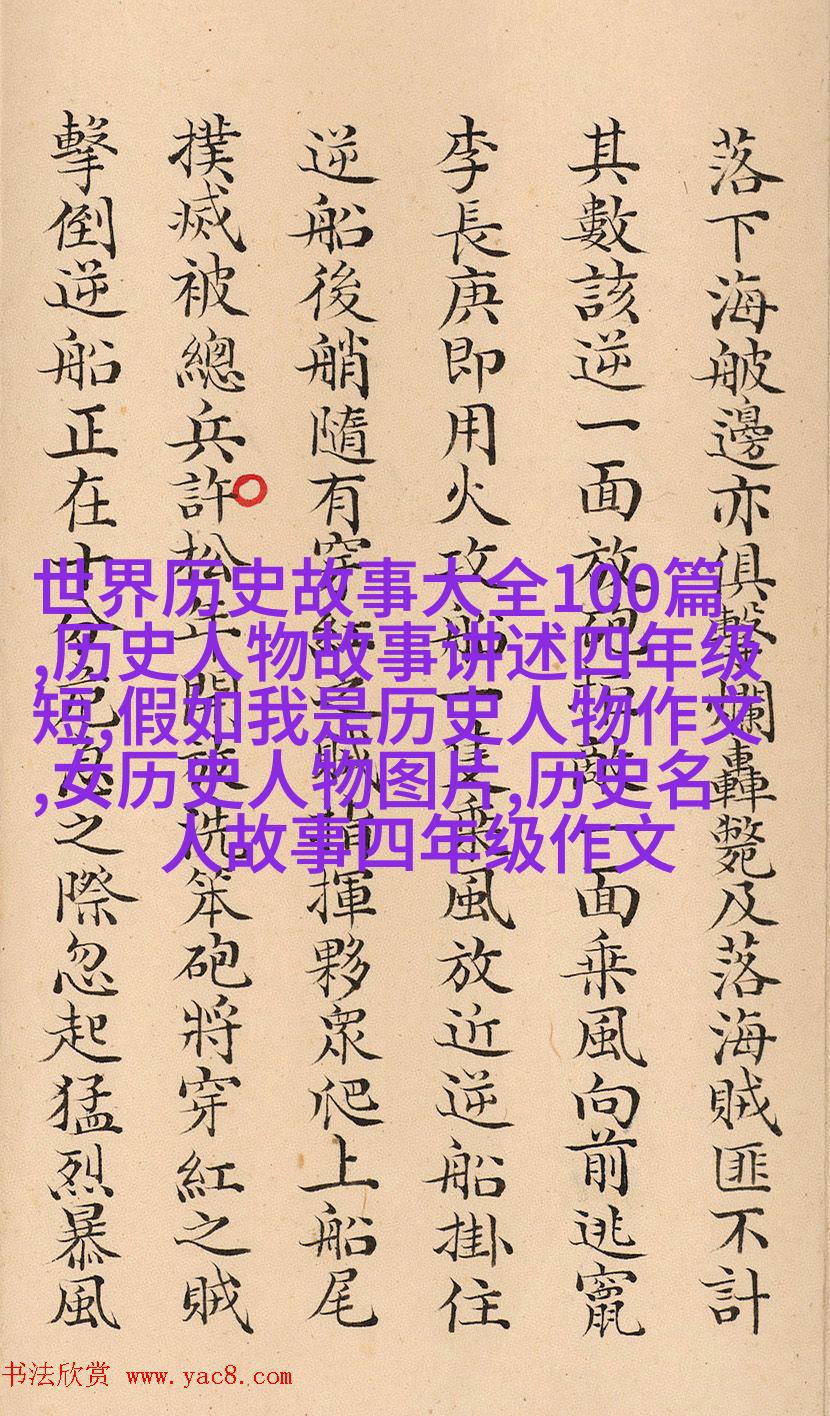 落下海邊亦俱擊爛轟斃及落海賊匪不計
其數該逆一面放砲拒敵一面乘風向前逃竄
李長庚即用火攻船一隻乘風放近逆船掛住
逆船後艄隨有穿紅之賊指揮夥眾爬上船尾
撲滅被總兵許松年開放洗笨砲將穿紅之賊
擊倒逆船正在十分危急之際忽起猛烈暴風
世界历史故事大全100篇
,历史人物故事讲述四年级
短,假如我是历史人物作文
,女历史人物图片,历史名
人故事四年级作文
书法欣赏 www.yac8.com